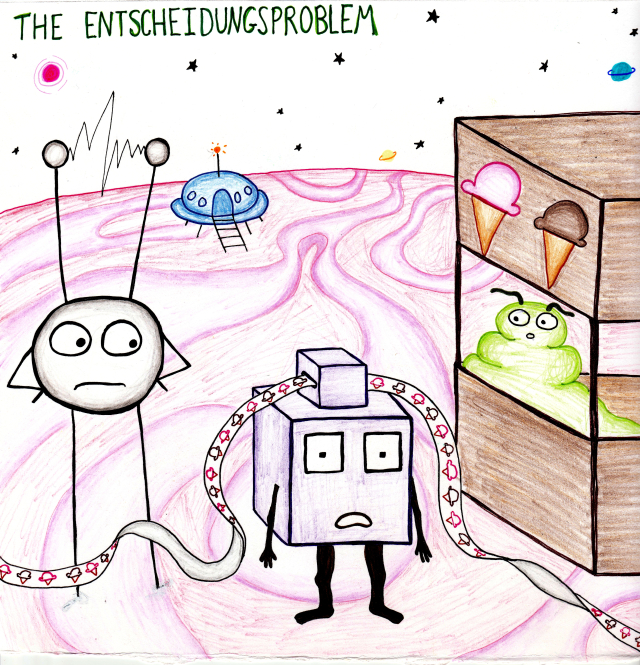 THE ENTSCHEIDUNGSPROBLEM